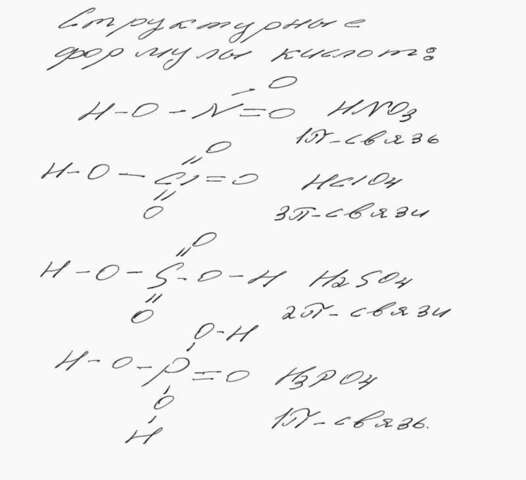 Структурные
формулы кислот:
O
H-O-N=O HNO3
1π-связь
O
H-O-Cl=O HClO4
O 3π-связи
O
H-O-S-O-H H2SO4
O 2π-связи
O-H
H-O-P=O H3PO4
O
H 1π-связь.